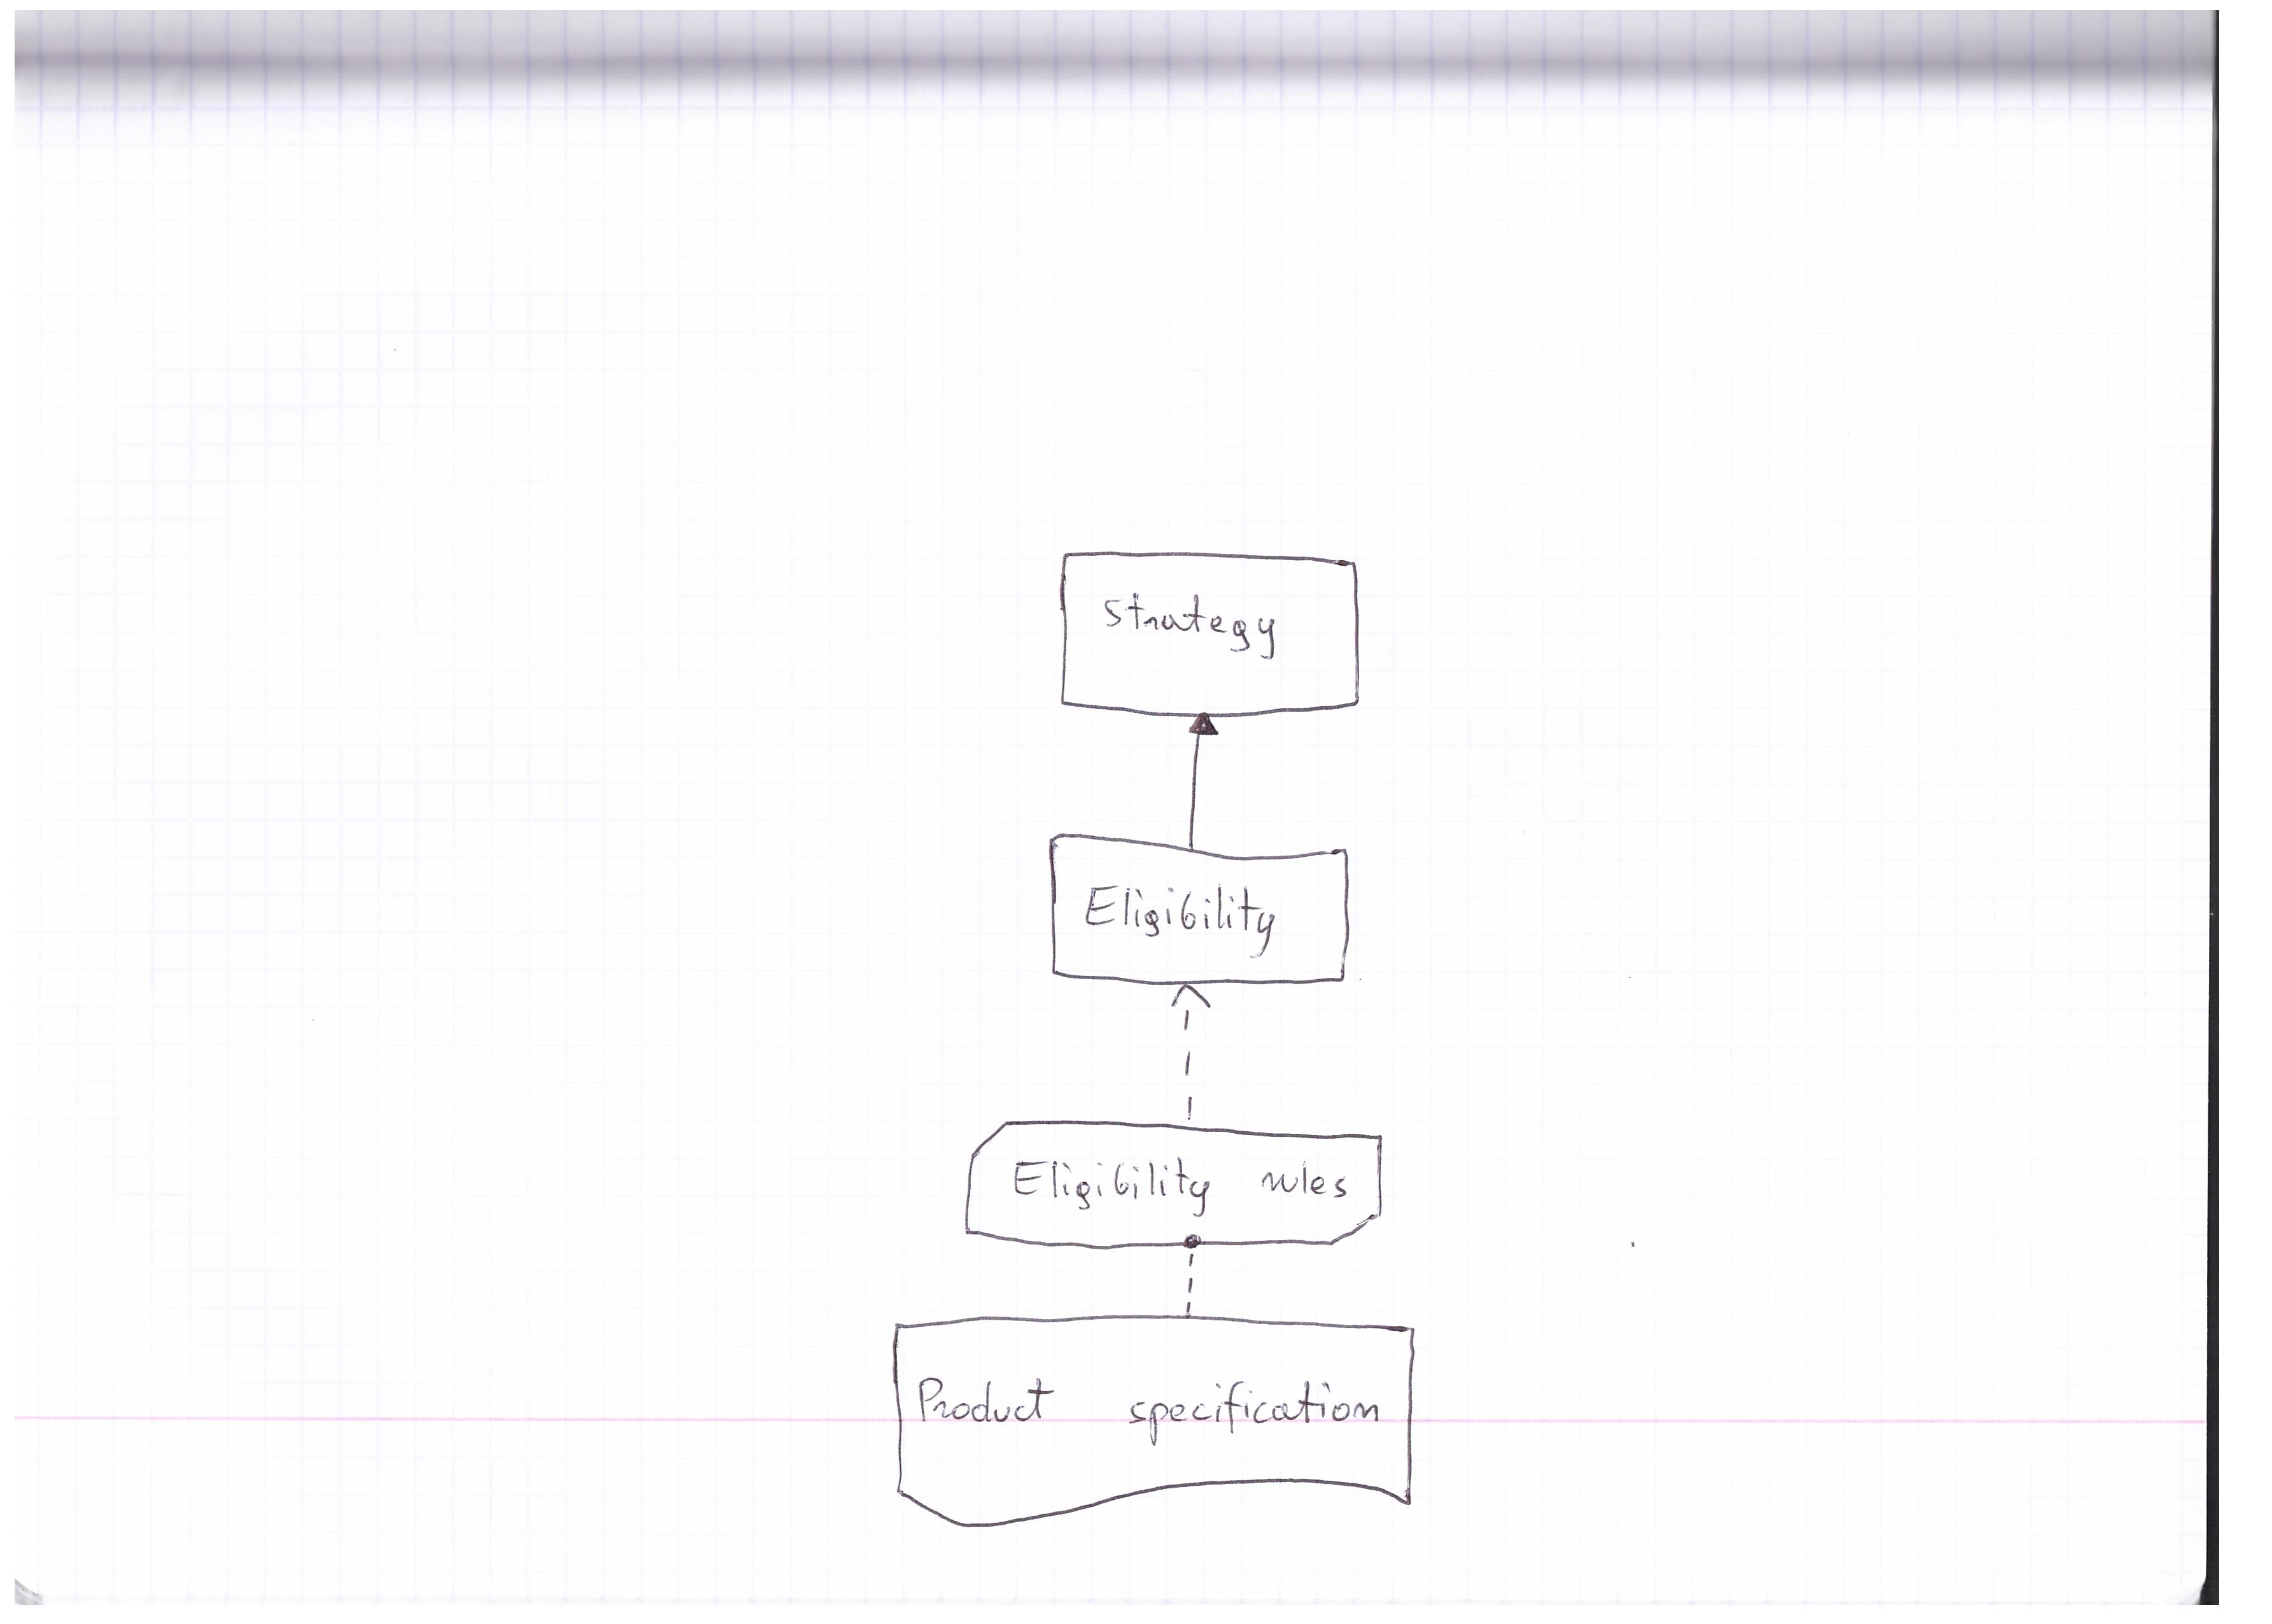 Strategy
Eligibility
Eligibility rules
Product specification